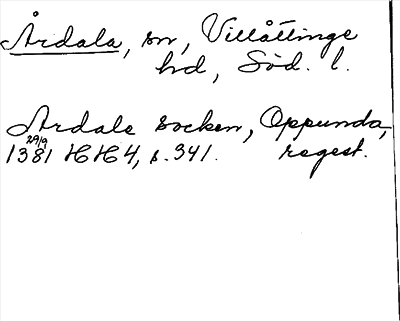 Årdala, sn, Villåttinge
hd, Söd. l.
Årdala socken, Oppunda,
29/9
1381 HH 4, s. 341. regest.